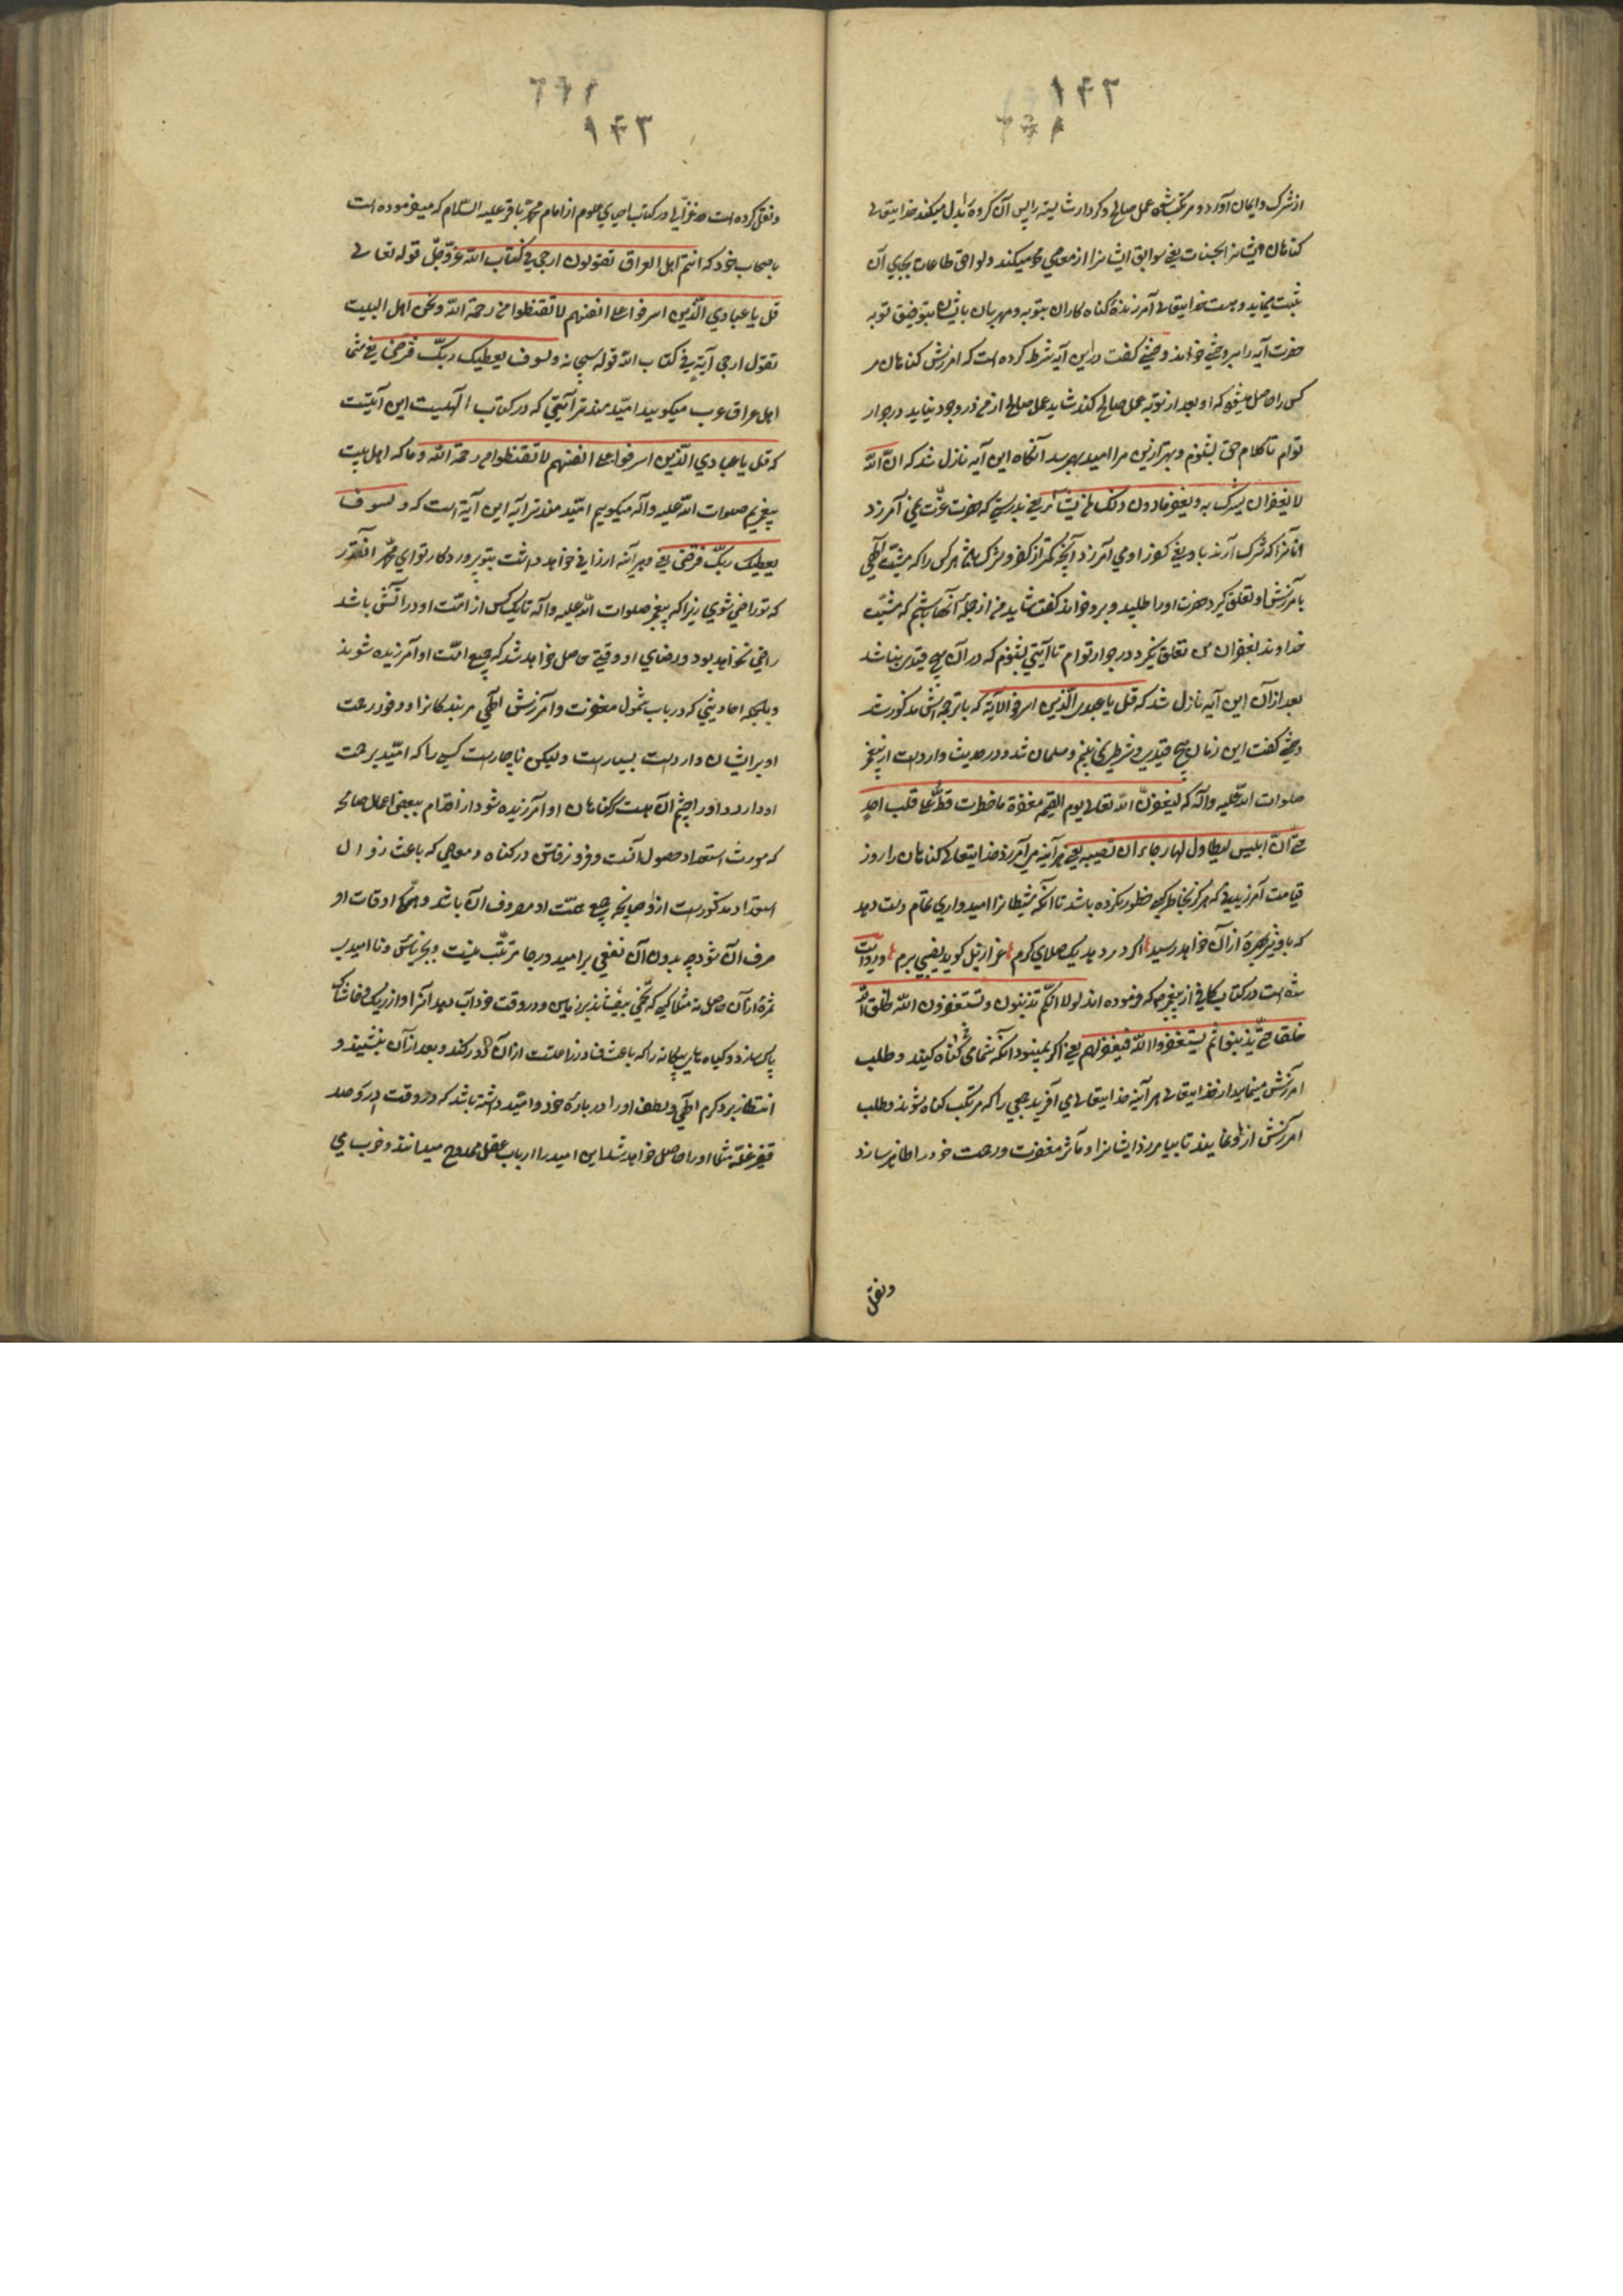 ١٤٢
از شرک و ایمان آورد و مرتکب شود عمل صالح و کردار شایسته را پس آن گروه بدل میکند خدایتعالی
کناهان ایشانرا بحسنات یعنی سوابق ایشانرا از معاصی محو میکند و لواحق طاعات بجای آن
ثبت مینماید و هست خدایتعالی آمرزنده کناه کاران بتوبه و مهربان بایشان بتوفیق توبه
حضرت آیه را بر وحشی خواند وحشی کفت در این آیه شرط کرده است که آمرزش کناهان مر
کسی را حاصل میشود که او بعد از توبه عمل صالح کند شاید عمل صالح از من در وجود نیاید در جوار
توام تا کلام حق بشنوم و بهتر ازین مرا امید بهم رسد آنکاه این آیه نازل شد که ان الله
لا یغفر ان یشرک به و یغفر ما دون ذلک لمن یشاء یعنی بدرستی که حضرت عزت نمی آمرزد
آنانرا که شرک آرند باو یعنی کفر و می آمرزد آنچه کمتر از کفر و شرک باشد هر کس را که مشیت الهی
بآمرزش او تعلق کیرد حضرت او را طلبید و برو خواند کفت شاید من از جمله آنها باشم که مشیت
خداوند بغفران من تعلق نکیرد در جوار توام تا آیتی بشنوم که در آن هیچ قیدی نباشد
بعد از آن این آیه نازل شد که قل یا عبادی الذین اسرفوا الآیة که با ترجمه اش مذکور شد
وحشی کفت این زمان هیچ قیدی و شرطی نمی بینم و مسلمان شد و در حدیث وارد است از پیغمبر
صلوات الله علیه و آله که لیغفرن الله تعالی یوم القیمة مغفرة ما خطرت قط علی قلب احد
حتی ان ابلیس لیطاول لها رجاء ان تصیبه یعنی هر آینه می آمرزد خدایتعالی کناهان را روز
قیامت آمرزیدنی که هرکز بخاطر کسی خطور نکرده باشد تا آنکه شیطانرا امیدواری تمام دست دهد
که باو نیز بهره از آن خواهد رسید اکر در دهد یک صلای کرم عزازیل کوید نصیبی برم و روایت
شده است در کتاب کافی از پیغمبر که فرموده اند لولا انکم تذنبون و تستغفرون الله لخلق الله
خلقا حتی یذنبوا ثم یستغفروا الله فیغفر لهم یعنی اکر نمیبود آنکه شمامی کناه کنید و طلب
آمرزش مینمایید از خدایتعالی هر آینه خدایتعالی می آفرید جمعی را که مرتکب کناه شوند و طلب
آمرزش از او نمایند تا بیامرزد ایشانرا و مآثر مغفرت و رحمت خود را ظاهر سازد
و نقل
١٤٣
و نقل کرده است غزالی در کتاب احیای علوم از امام محمد باقر علیه السلام که میفرموده است
باصحاب خود که انتم اهل العراق تقولون ارجی آیة فی کتاب الله عز و جل قوله تعالی
قل یا عبادی الذین اسرفوا علی انفسهم لا تقنطوا من رحمة الله و نحن اهل البیت
نقول ارجی آیة فی کتاب الله قوله سبحانه و لسوف یعطیک ربک فترضی یعنی شما
اهل عراق عرب میکویید امیدمندتر آیتی که در کتاب الهیست این آیتست
که قل یا عبادی الذین اسرفوا علی انفسهم لا تقنطوا من رحمة الله و ما که اهل بیت
پیغمبریم صلوات الله علیه و آله میکوییم امیدمندتر آیه این آیة است که و لسوف
یعطیک ربک فترضی یعنی و هر آینه ارزانی خواهد داشت بتو پروردکار تو ای محمد آنقدر
که تو راضی شوی زیرا که پیغمبر صلوات الله علیه و آله تا یک کس از امت او در آتش باشد
راضی نخواهد بود و رضای او وقتی حاصل خواهد شد که جمیع امت او آمرزیده شوند
و بالجمله احادیثی که در باب شمول مغفرت و آمرزش الهی مر بندکانرا و وفور رحمت
او بر ایشان وارد است بسیار است ولیکن ناچار است کسی را که امید برحمت
او دارد و او را چشم آن هست که کناهان او آمرزیده شود از اقدام ببعض اعمال صالحه
که مورث استعداد حصول آنست و فرو نرفتن در کناه و معاصی که باعث زوال
استعداد مذکور است از او چنانچه جمیع همت او مصروف آن باشد و همکی اوقات او
صرف آن شود چه بدون آن نفعی بر امید و رجا مترتب نیست و بجز یأس و ناامیدی
ثمره از آن حاصل نه مثلا کسی که تخمی بیفشاند بر زمین و در وقت خود آب دهد آنرا و از ریک و خاشاک
پاک سازد و کیاه های بیکانه را که باعث فساد زراعتست از آن دور کند و بعد از آن بنشیند و
انتظار برد کرم الهی و لطف او را در باره خود و امید داشته باشد که در وقت درو صد
قفیز غله مثلا او را حاصل خواهد شد این امید را ارباب عقل ممدوح میدانند و خوب می